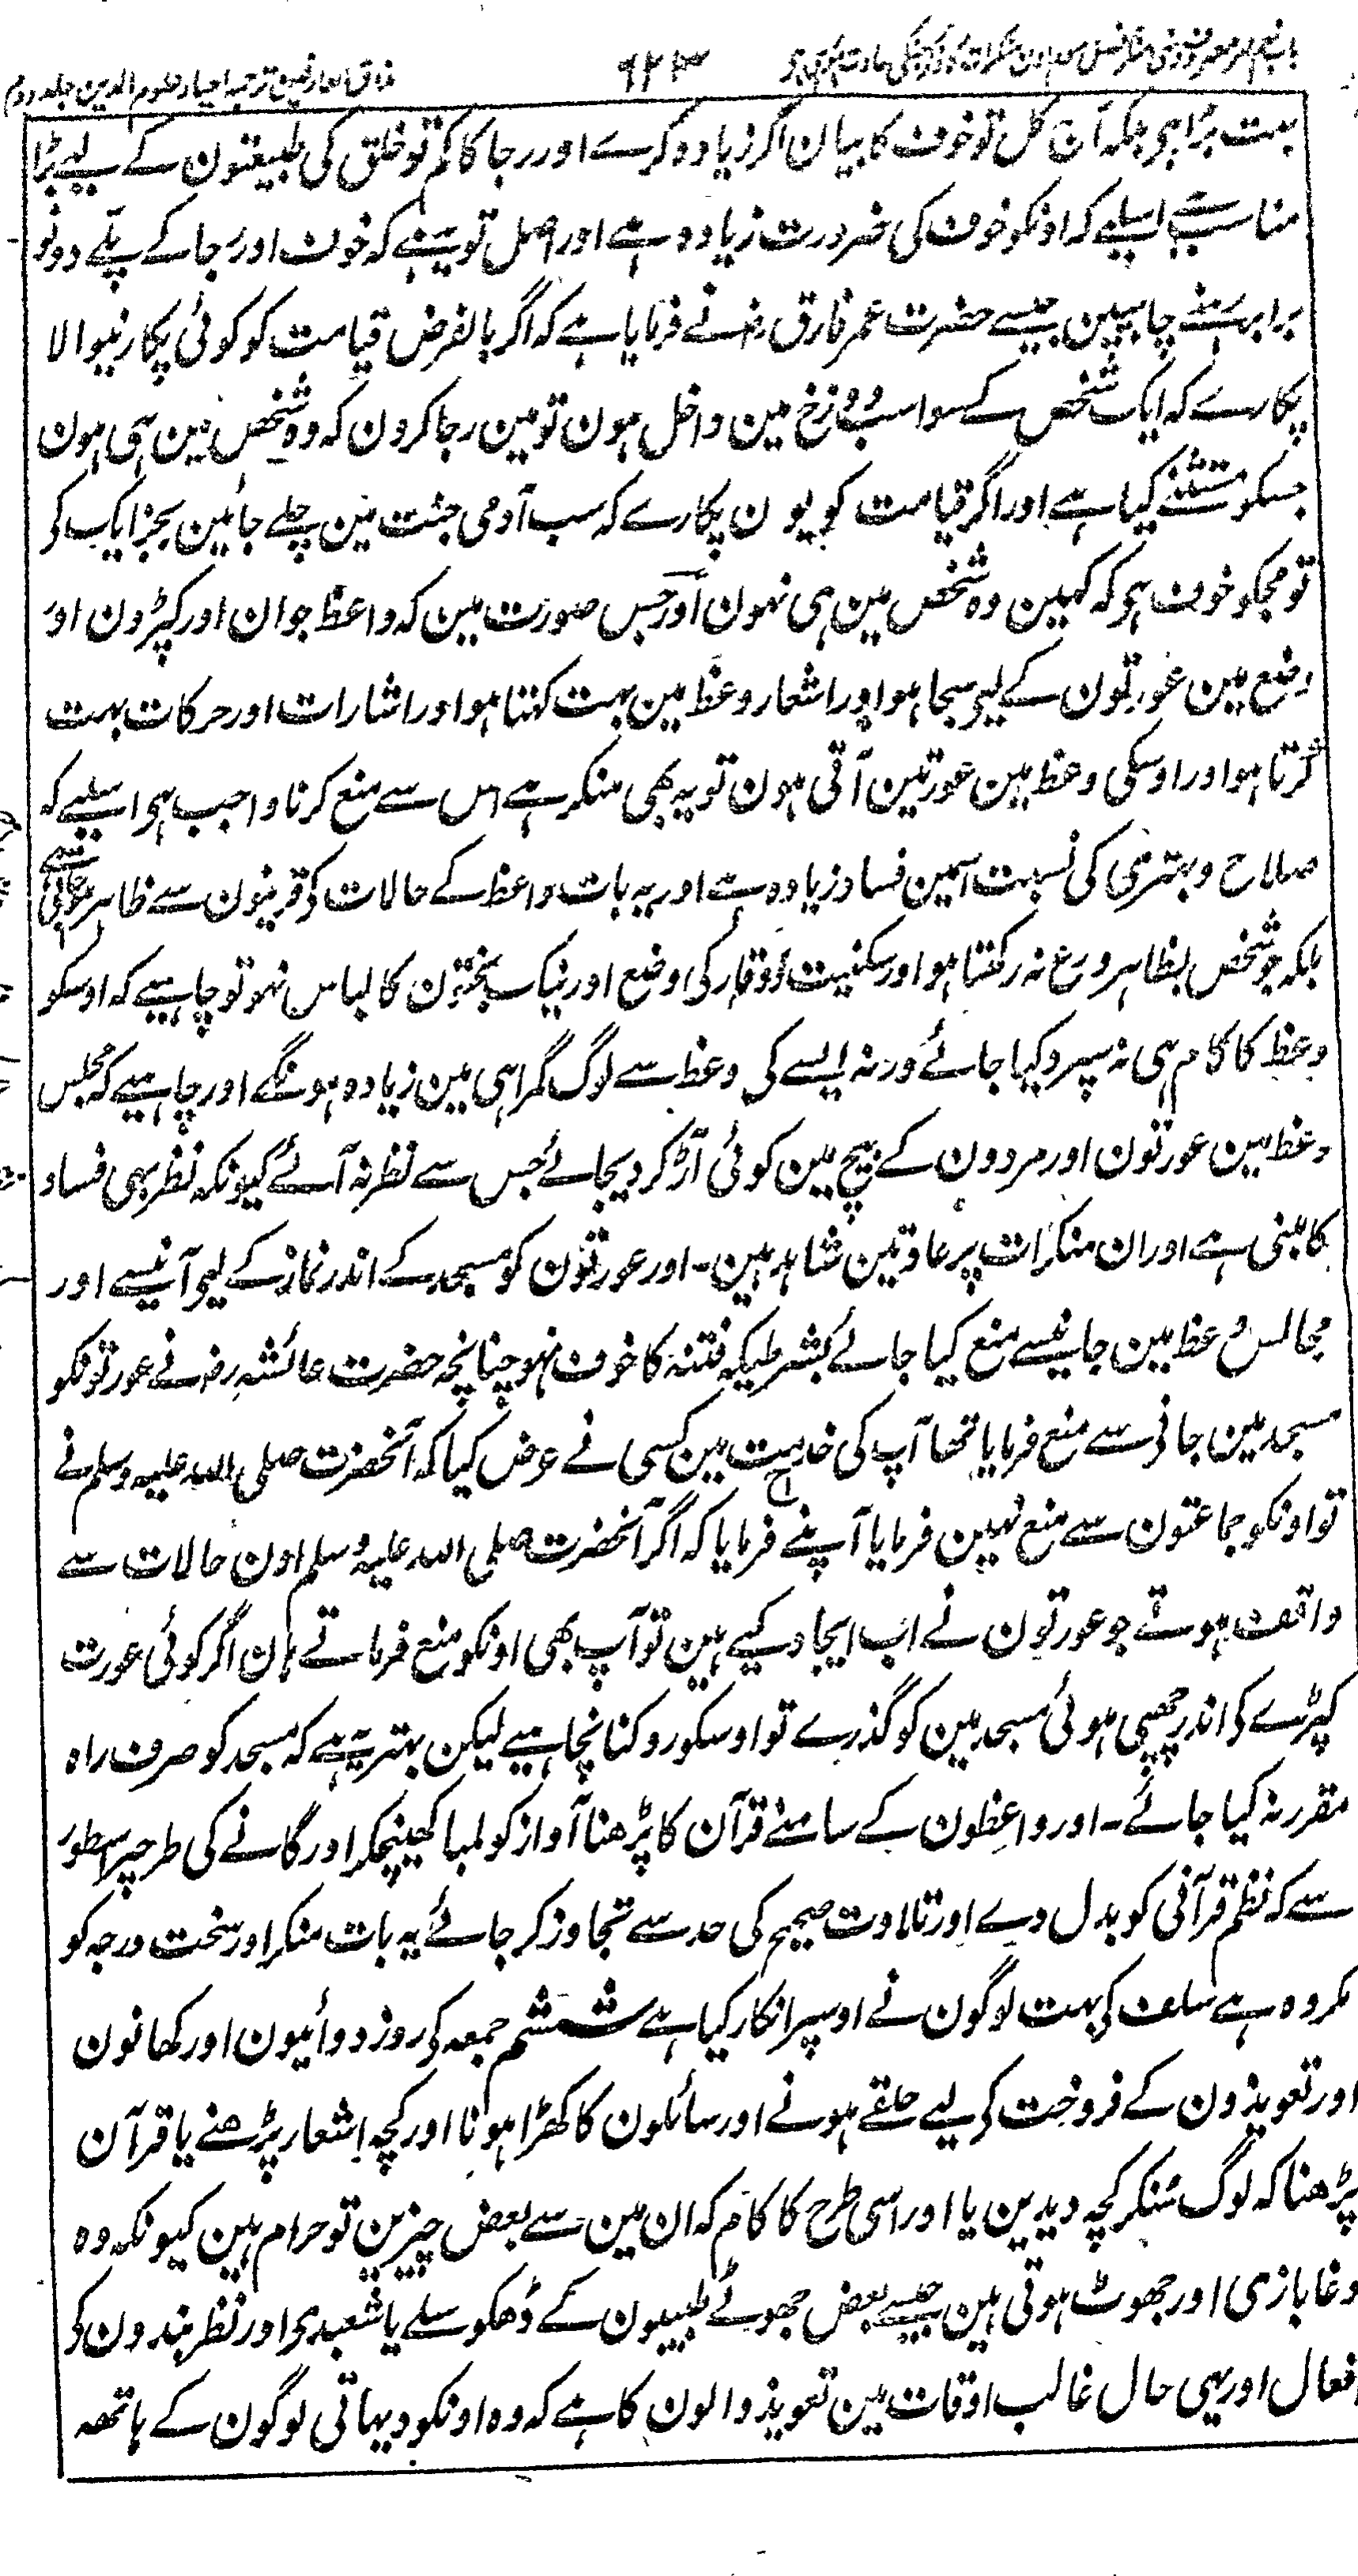 مذاق العارفین ترجمہ احیاء علوم الدین جلد دوم
۶۲۳
بہت برا ہی بلکہ آج کل تو خوف کا بیان اگر زیادہ کرے اور رجا کا کم تو خلق کی طبیعتون کے لیے بڑا
مناسب ہے اسلیے کہ اونکو خوف کی ضرورت زیادہ ہے اور اصل تو یہ ہے کہ خوف اور رجا کے پلے دونو
برابر رہنے چاہیین جیسے حضرت عمر فارق رضہ نے فرمایا ہے کہ اگر بالفرض قیامت کو کوئی پکارنیوالا
پکارے کہ ایک شخص کے سوا سب دوزخ مین داخل ہون تو مین رجا کرون کہ وہ شخص مین ہی ہون
جسکو مستثنے کیا ہے اور اگر قیامت کو یون پکارے کہ سب آدمی جنت مین چلے جائین بجز ایک کی
تو مجکو خوف ہو کہ کہین وہ شخص مین ہی نہون اور جس صورت مین کہ واعظ جوان اور کپڑون اور
وضع مین عورتون کے لیے سجا ہوا ہو اور اشعار وعظ مین بہت کہتا ہو اور اشارات اور حرکات بہت
کرتا ہو اور اوسکی وعظ مین عورتین آتی ہون تو یہ بھی منکر ہے اس سے منع کرنا واجب ہی اسلیے کہ
صلاح و بہتری کی نسبت اسمین فساد زیادہ ہے اور یہ بات واعظ کے حالات کی قرینون سے ظاہر ہو جاتی ہے
بلکہ جو شخص بظاہر ورع نہ رکھتا ہو اور سکنیت اور وقار کی وضع اور نیک بختون کا لباس نہو تو چاہیے کہ اوسکو
وعظ کا کام ہی نہ سپرد کیا جائے ورنہ ایسے کی وعظ سے لوگ گمراہی مین زیادہ ہونگے اور چاہیے کہ مجلس
وعظ مین عورتون اور مردون کے بیچ مین کوئی آڑ کر دیجائے جس سے نظر نہ آئے کیونکہ نظر بھی فساد
کا مبنی ہے اور ان منکرات پر عادتین شاہد ہین۔ اور عورتون کو مسجد کے اندر نماز کے لیے آنیسے اور
مجالس وعظ مین جانیسے منع کیا جائے بشرطیکہ فتنہ کا خوف نہو چنانچہ حضرت عائشہ رضہ نے عورتونکو
مسجد مین جانی سے منع فرمایا تھا آپ کی خدمت مین کسی نے عرض کیا کہ آنحضرت صلی اللہ علیہ وسلم نے
تو اونکو جماعتون سے منع نہین فرمایا آپنے فرمایا کہ اگر آنحضرت صلی اللہ علیہ وسلم اون حالات سے
واقف ہوتے جو عورتون نے اب ایجاد کیے ہین تو آپ بھی اونکو منع فرماتے ہان اگر کوئی عورت
کپڑے کی اندر چھپی ہوئی مسجد مین کو گذرے تو اوسکو روکنا نچاہیے لیکن بہتر یہ ہے کہ مسجد کو صرف راہ
مقرر نہ کیا جائے۔ اور واعظون کے سامنے قرآن کا پڑھنا آواز کو لمبا کھینچکر اور گانے کی طرحپر اسطور
سے کہ نظم قرآنی کو بدل دے اور تلاوت صحیح کی حد سے تجاوز کر جائے یہ بات منکر اور سخت درجہ کو
مکروہ ہے سلف کی بہت لوگون نے اوسپر انکار کیا ہے ششم جمعہ کی روز دوائیون اور کھانون
اور تعویذون کے فروخت کی لیے حلقے ہونے اور سائلون کا کھڑا ہونا اور کچہ اشعار پڑھنے یا قرآن
پڑھنا کہ لوگ سنکر کچہ دیدین یا اور اسی طرح کا کام کہ ان مین سے بعض چیزین تو حرام ہین کیونکہ وہ
دغا بازی اور جھوٹ ہوتی ہین جیسے بعض جھوٹے طبیبون کے ڈھکوسلے یا شعبدی اور نظر بندون کی
افعال اور یہی حال غالب اوقات مین تعویذ والون کا ہے کہ وہ اونکو دیہاتی لوگون کے ہاتھہ